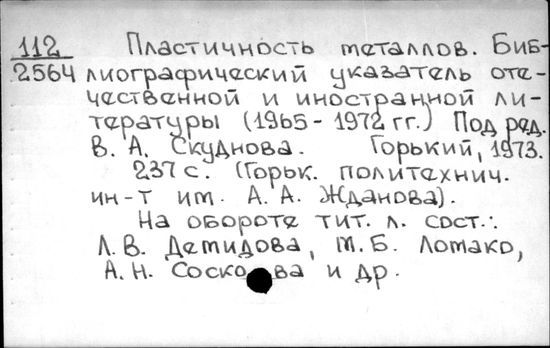 112 Пластичность металлов. Биб-
2564 лиографический указатель оте-
чественной и иностранной ли-
тературы (1965-1972 гг.) Под ред.
В. А. Скуднова. Горький, 1973.
237 с. (Горьк. политехнич.
ин-т им. А. А. Жданова).
На обороте тит. л. сост.:
Л. В. Демидова, М. Б. Ломако,
А. Н. и др.